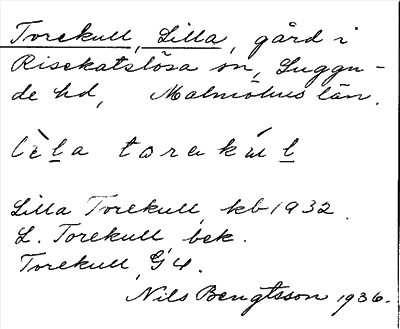 Torekull, Lilla, gård i
Risekatslösa sn, Luggu-
de hd, Malmöhus län.
lìl̲a torekúl̲
Lilla Torekull, kb 1932.
L. Torekull, bek.
Torekull, G4.
Nils Bengtsson 1936.